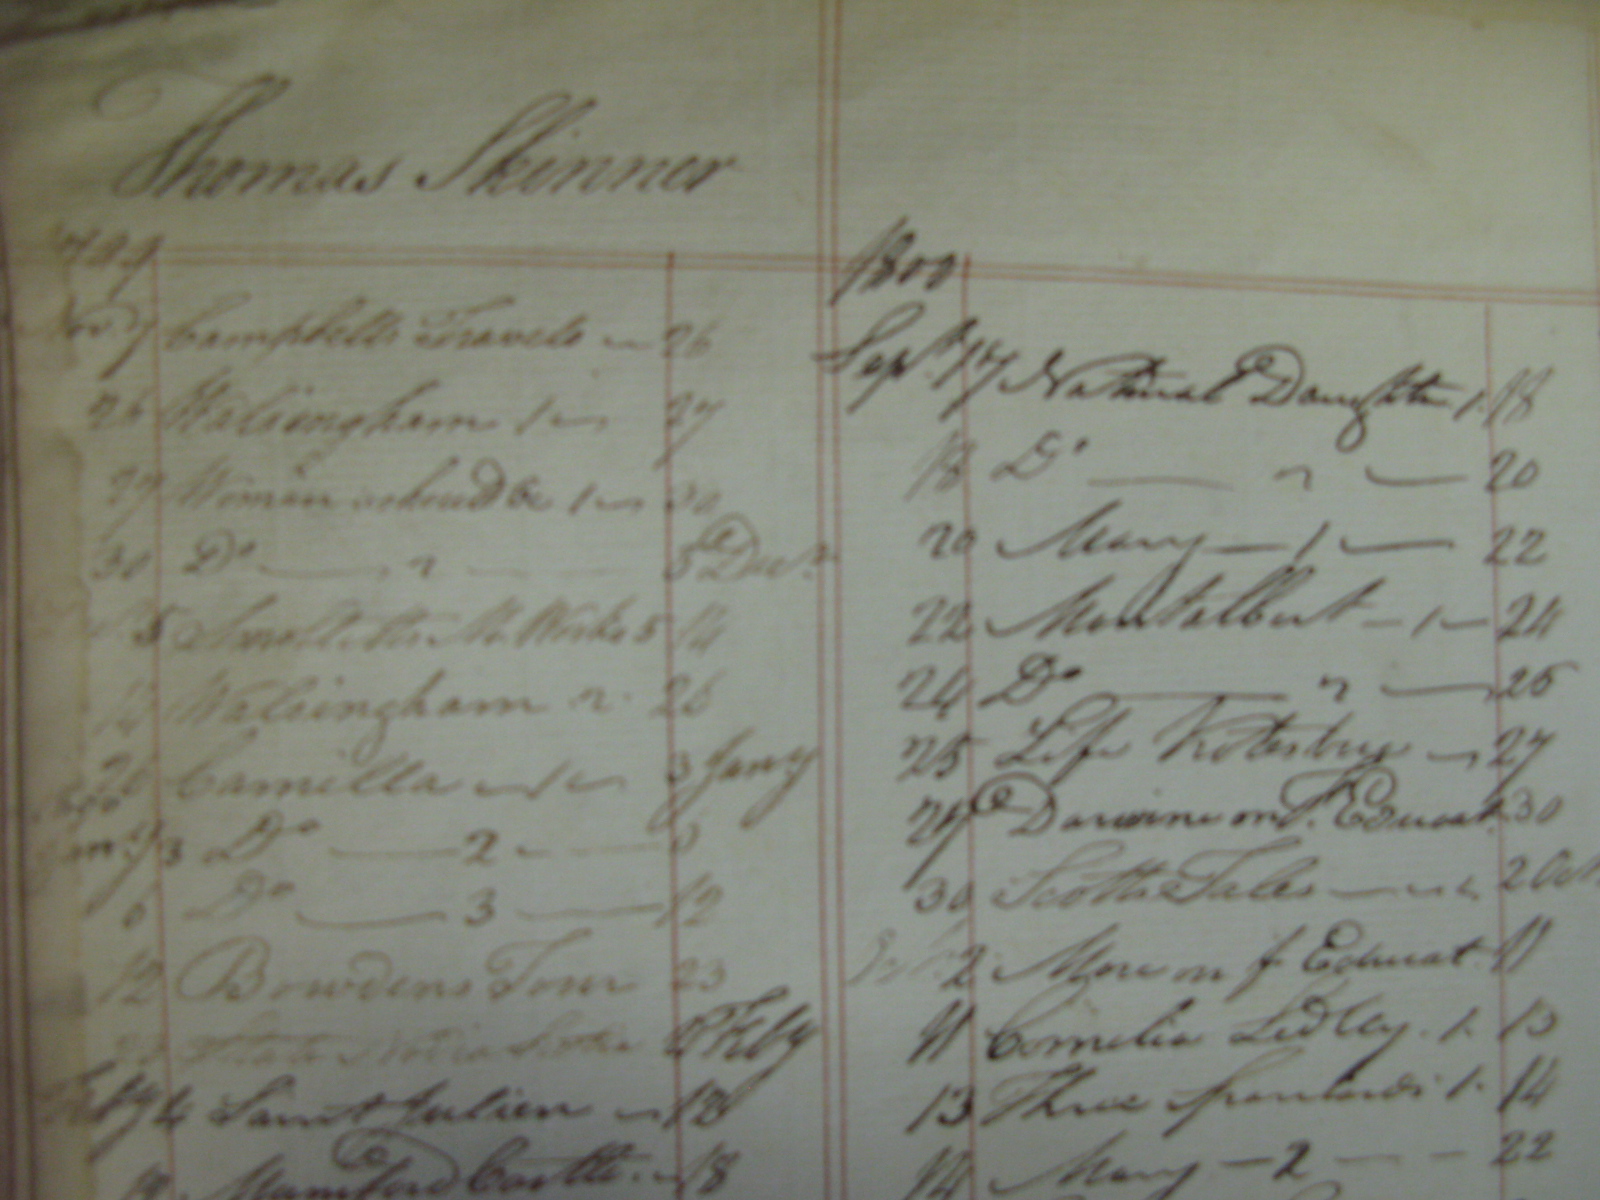 Thomas Skinner
1799
Nov. 7 Campbells Travels 26
26 Walsingham 1 27
27 Woman as should be 1 30
30 Do 2 5 Decr
5 Smolletts M. Works 5 14
14 Walsingham 2 26
26 Camilla 1 3 Jany
1800
Jany 3 Do 2 6
6 Do 3 12
12 Bowdens Tour 23
23 Nova Scotia Feby
Feby 4 Saint Julien 12
Castle 18
1800
Sepr. 17 Natural Daughter 1. 18
18 Do 2 20
20 Mary 1 22
22 Montalbert 1 24
24 Do 2 25
25 Life Kotzebue 27
27 Darwine on F. Educat. 30
30 Scotts Tales 2 Oct
Oct. 2 More on f Educat. 11
11 Cornelia Sedley. 1. 13
13 Three Spaniards 1. 14
14 Mary 2 22